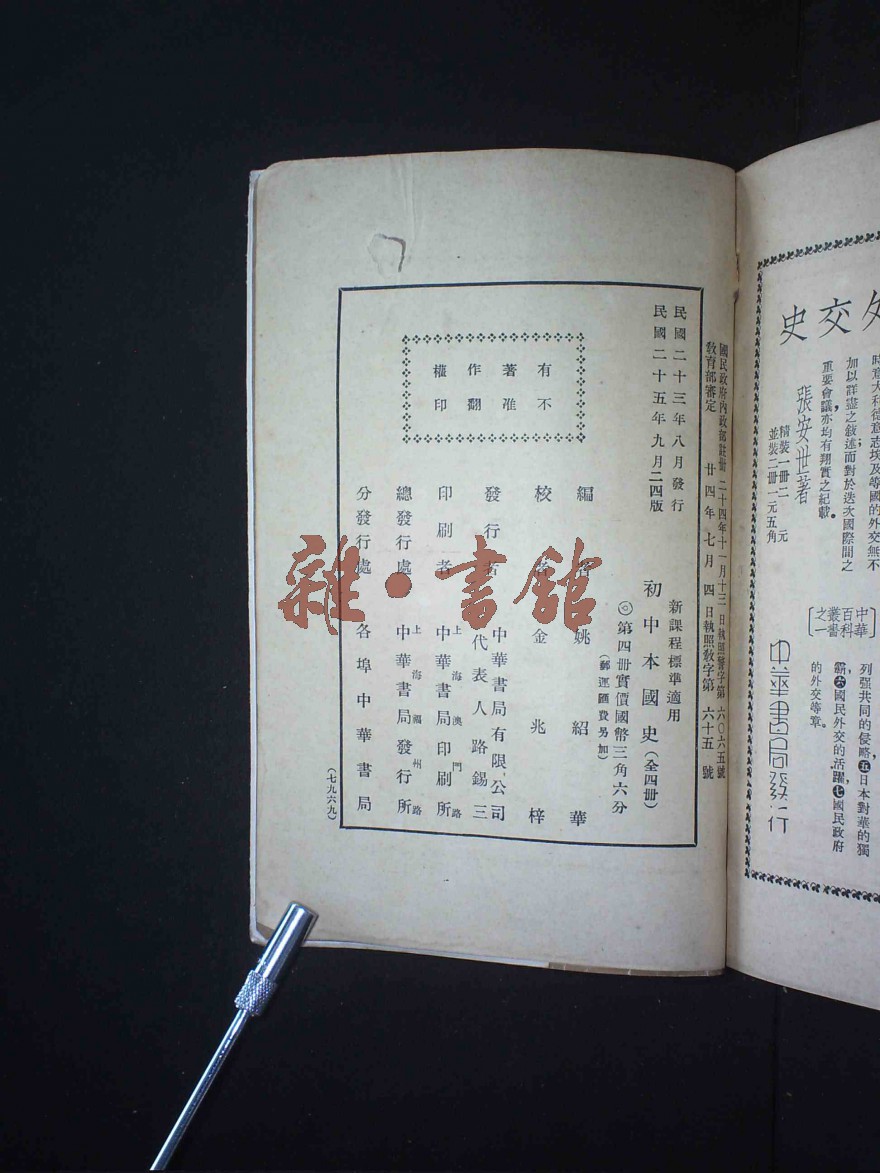 國民政府內政部註冊 二十四年十一月十三日執照警字第六〇六五號
教育部審定 廿四年七月四日執照教字第六十五號
民國二十三年八月發行
民國二十五年九月二四版
有著作權
不准翻印
新課程標準適用
初中本國史（全四冊）
◎第四冊實價國幣三角六分
（郵運匯費另加）
編者 姚紹華
校者 金兆梓
發行者 中華書局有限公司
代表人路錫三
印刷者 上海澳門路
中華書局印刷所
總發行處 上海福州路
中華書局發行所
分發行處 各埠中華書局
（七九六九）
雜·書館
外交史
張安世著
精裝一冊二元
並裝二冊一元五角
時意大利德意志埃及等國的外交無不
加以詳盡之敘述而對於迭次國際間之
重要會議，亦均有翔實之紀載。
中華百科叢書之一
列強共同的侵略，五日本對華的獨
霸，六國民外交的活躍，七國民政府
的外交等章。
中華書局發行